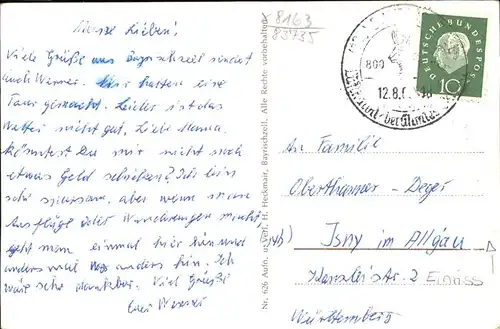 Meine Lieben!
Viele Grüße aus Bayrischzell sendet
auch Werner. Wir hatten eine
Tour gemacht. Leider ist das
Wetter nicht gut. Liebe Mama
könntest Du mir nicht noch
etwas Geld schicken? Ich bin
sehr sparsam, aber wenn man
Ausflüge oder Wanderungen macht
geht man einmal hier hin und
anders mal wo anders hin. Ich
wäre sehr dankbar. Viel Grüße
Euer Werner
8163
83735
Nr. 626 Aufn. u. Verl. H. Heckmair, Bayrischzell. Alle Rechte vorbehalten
12.8.
DEUTSCHE BUNDESPOST
10
An Familie
Oberthanner - Deger
(14b) Isny im Allgäu
Kanzleistr. 2
Württemberg